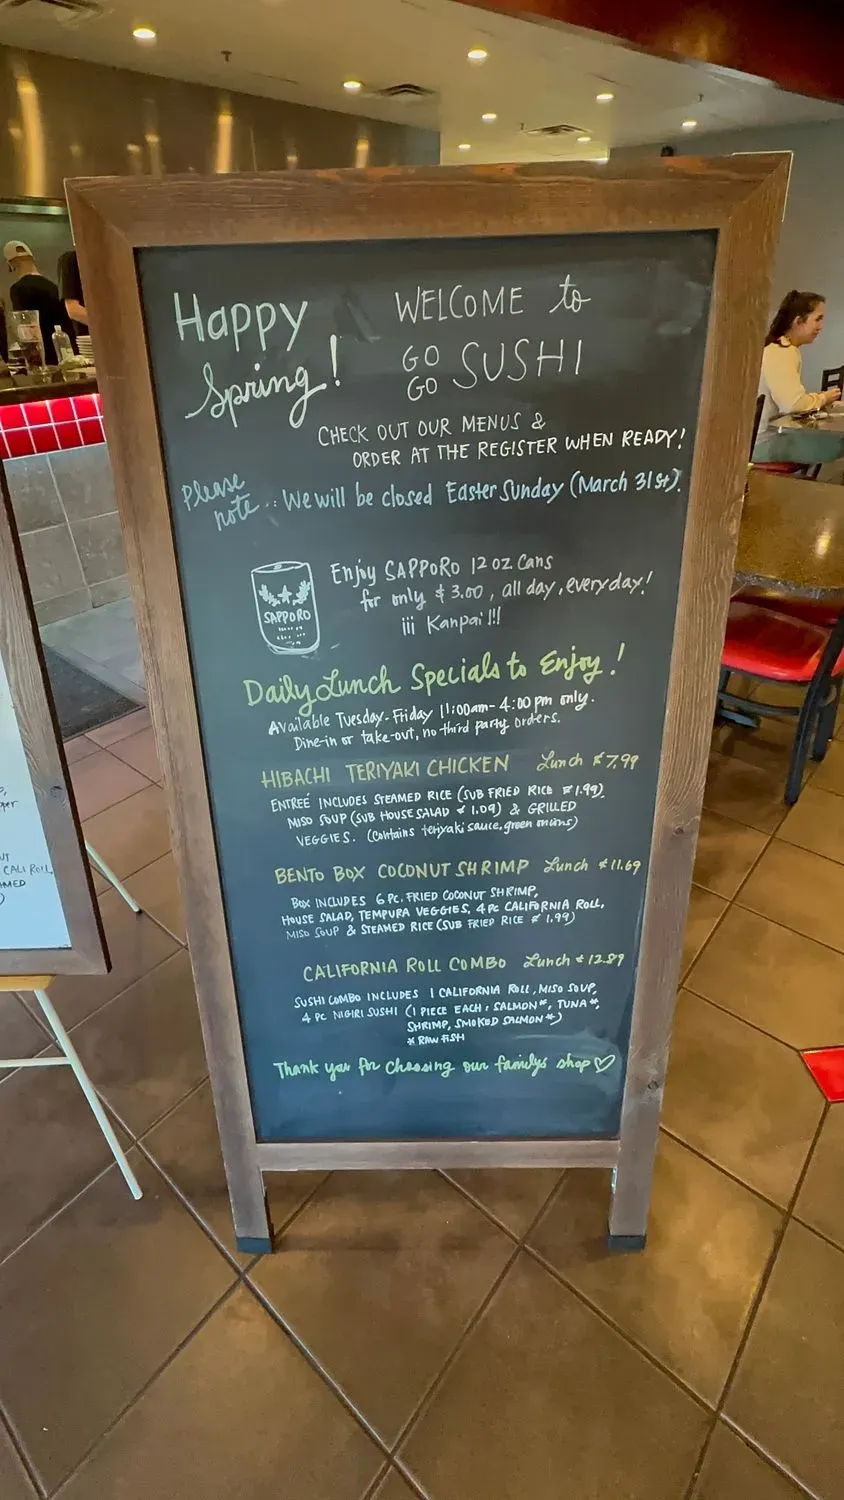 Happy
Spring!
WELCOME to
GO GO SUSHI
CHECK OUT OUR MENUS &
ORDER AT THE REGISTER WHEN READY!
Please note.. We will be closed Easter Sunday (March 31st).
Enjoy SAPPORO 12 oz Cans
for only $3.00, all day, everyday!
¡¡¡ Kanpai !!!
SAPPORO
Daily Lunch Specials to Enjoy!
Available Tuesday-Friday 11:00am-4:00pm only.
Dine-in or take-out, no third party orders.
HIBACHI TERIYAKI CHICKEN Lunch $7.99
ENTREÉ INCLUDES STEAMED RICE (SUB FRIED RICE $1.99),
MISO SOUP (SUB HOUSE SALAD $1.09) & GRILLED
VEGGIES. (Contains teriyaki sauce, green onions)
BENTO BOX COCONUT SHRIMP Lunch $11.69
BOX INCLUDES 6 PC. FRIED COCONUT SHRIMP,
HOUSE SALAD, TEMPURA VEGGIES, 4 PC CALIFORNIA ROLL,
MISO SOUP & STEAMED RICE (SUB FRIED RICE $1.99)
CALIFORNIA ROLL COMBO Lunch $12.89
SUSHI COMBO INCLUDES 1 CALIFORNIA ROLL, MISO SOUP,
4 PC NIGIRI SUSHI (1 PIECE EACH: SALMON*, TUNA*,
SHRIMP, SMOKED SALMON*)
* RAW FISH
Thank you for choosing our family's shop♡
CALI ROLL,